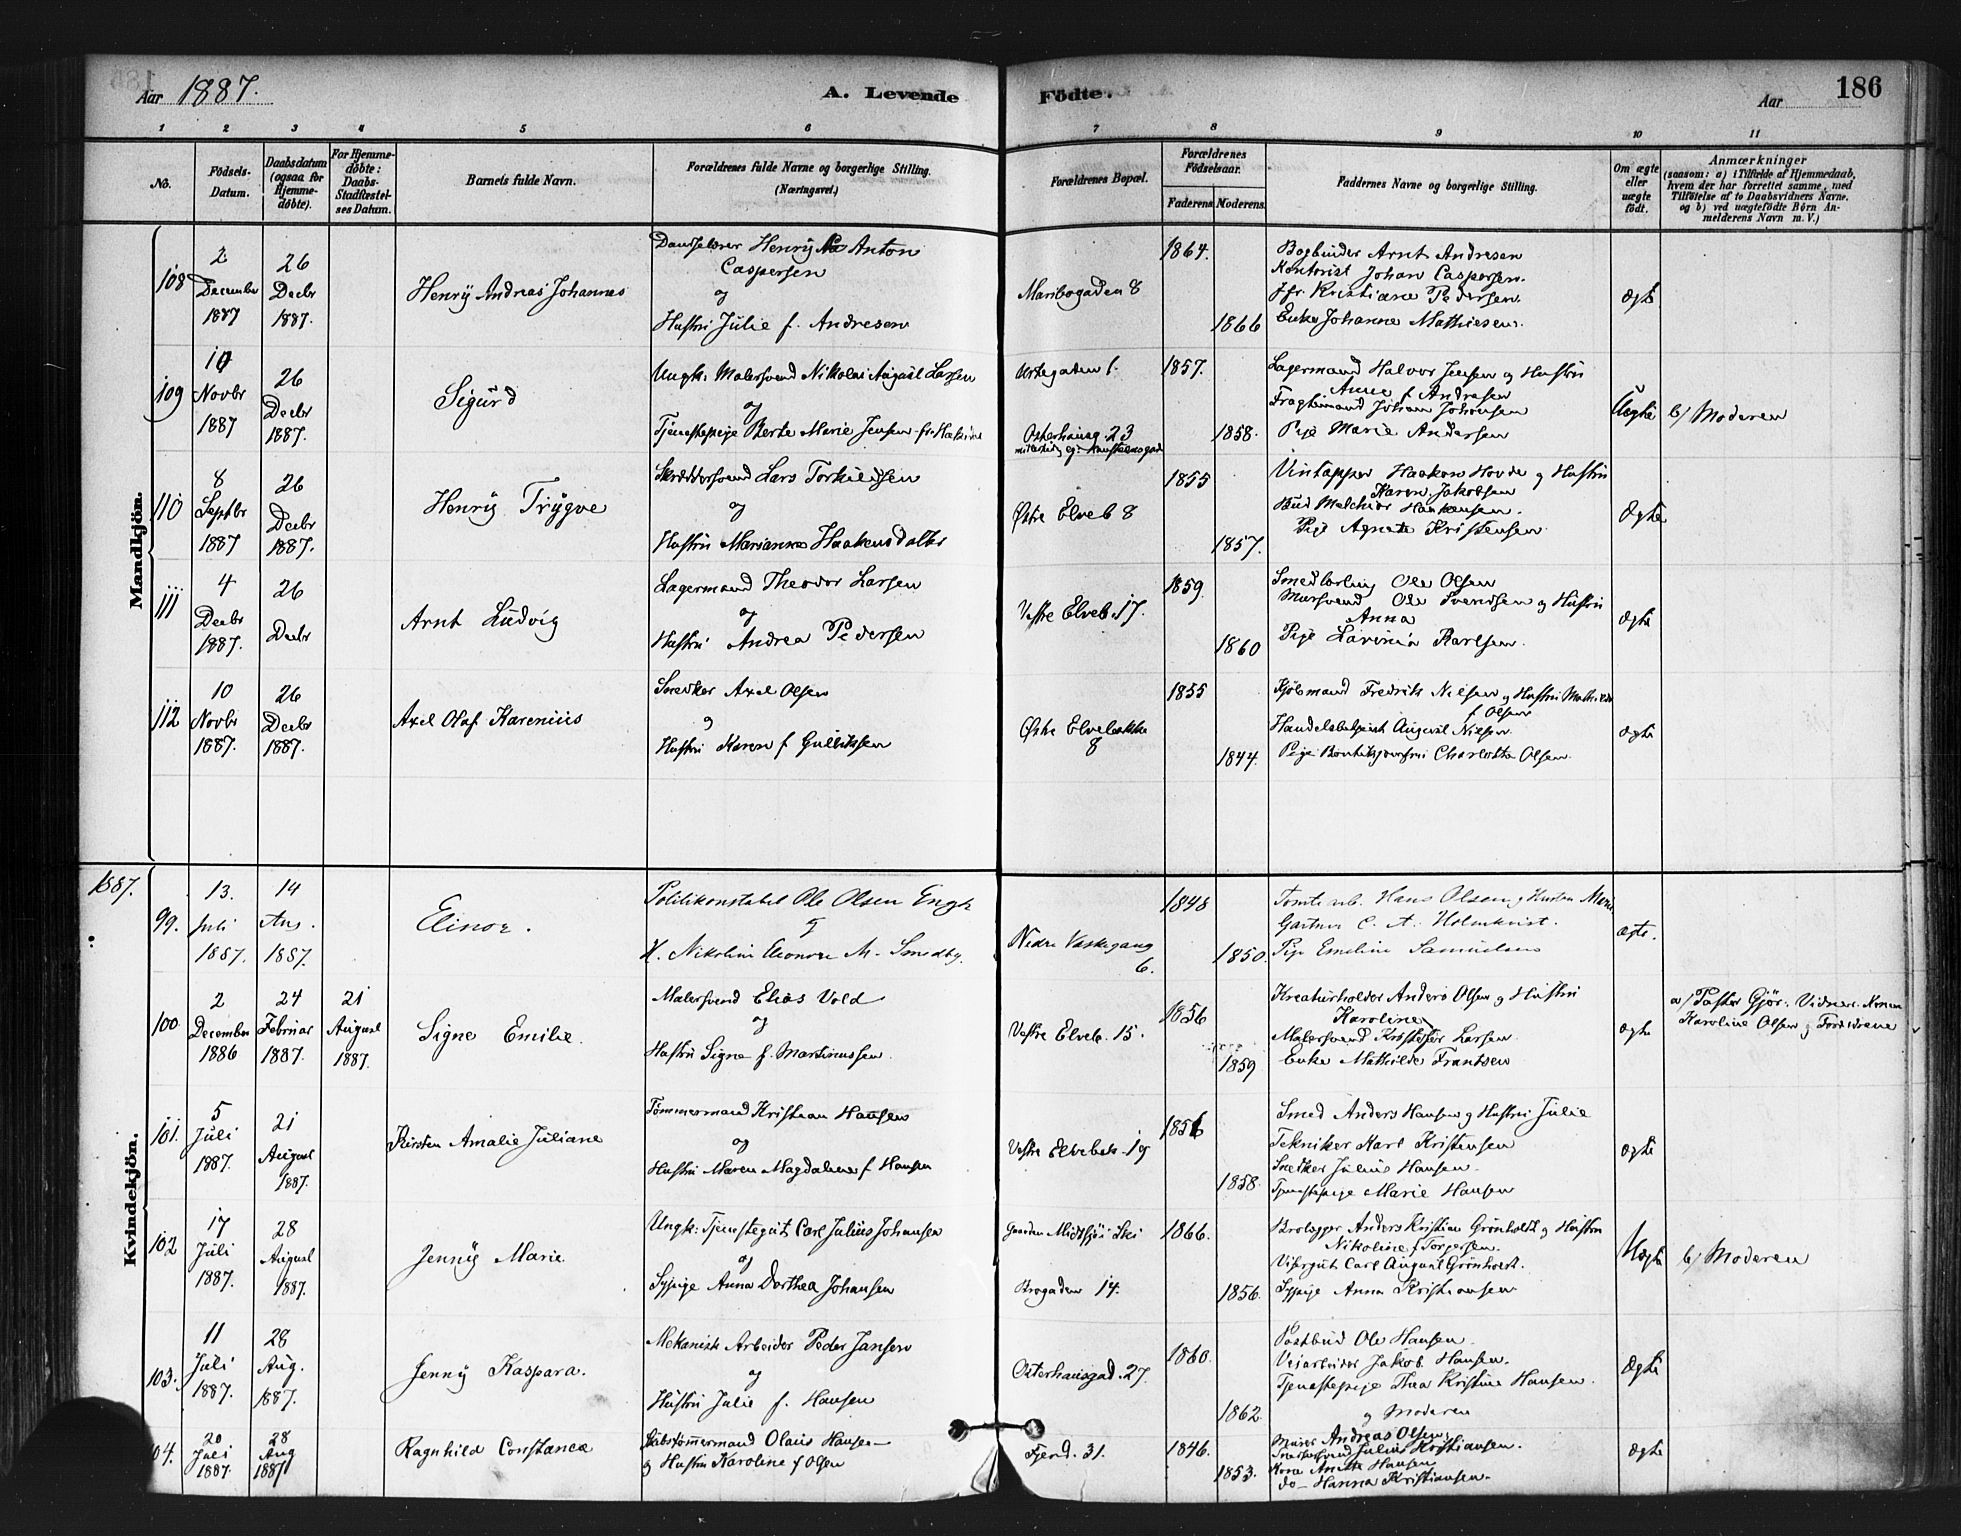 Aar 1887. A. Levende Födte. Aar 186
1 2 3 4 5 6 7 8 9 10 11
No. Födsels-Datum. Daabsdatum (ogsaa for Hjemmedöbte). For Hjemmedöbte: Daabs-Stadfæstelses Datum. Barnets fulde Navn. Forældrenes fulde Navne og borgerlige Stilling. (Næringsvei.) Forældrenes Bopæl. Forældrenes Födselsaar. Faderens Moderens. Faddernes Navne og borgerlige Stilling. Om ægte eller uægte födt. Anmærkninger (saasom: a) i Tilfælde af Hjemmedaab, hvem der har forrettet samme, med Tilföielse af to Daabsvidners Navne. og b) ved uægtefödte Börn Anmelderens Navn m. V.)
Mandkjön.
108 2 December 1887 26 Decbr 1887. Henry Andreas Johannes
Danselærer Henry Anton
Caspersen
og
Hustru Julie f. Andresen
Maribogaden 8 1864. 1866
Bogbinder Arnt Andresen
Kontorist Johan Caspersen.
Jfr Kristiane Pedersen
Enke Johanne Mathiesen.
ægte
109 10 Novbr 1887 26 Decbr 1887. Sigurd
Ungk: Malersvend Nikolai August Larsen
og
Tjenestepige Berte Marie Jensen
Urtegaden 1. 1857.
Osterhausg 23 1858.
Lagermand Halvor Jensen og Hustru
Anne f Andresen
Fragtemand Johan Johansen
Pige Marie Andersen
Uægte b) Moderen
110 8 Septbr 1887 26 Decbr 1887. Henry Trygve
Skræddersvend Lars Torkildsen
og
Hustru Marianne Haakensdatter
Østre Elveb 8 1855 1857.
Vintapper Haakon Hovde og Hustru
Karen Jakobsen
Bud Melchior Haakensen.
Pige Agnete Kristensen
Ægte
111 4 Decbr 1887. 26 Decbr Arnt Ludvig
Lagermand Theodor Larsen
og
Hustru Andrea Pedersen
Vestre Elveb. 17. 1859. 1860
Smedlærling Ole Olsen
Mursvend Ole Svendsen og Hustru
Anna
Pige Lavinia Karlsen.
ægte
112 10 Novbr 1887. 26 Decbr 1887. Axel Olaf Karenius
Snedker Axel Olsen
og
Hustru Karen f Gulliksen
Østre Elvebakke
8
1855 1844.
Kjøbmand Fredrik Nilsen og Hustru Mathilde
f Olsen
Handelsbetjent August Nilsen
Pige Charlotte Olsen.
ægte
1887.
Kvindekjön.
99. 13. Juli 1887. 14 Aug. 1887. Elinor.
Politikonstabel Ole Olsen Engh
og
H. Nikoline Eleonore M. Smedby.
Nedre Vaskegang
6.
1848 1850.
Tomtearb. Hans Olsen og Hustru Marie
Gartner C. A. Holmkvist.
Pige Emeline Samuelsen
ægte.
100 2 December 1886 24 Februar 1887. 21 August 1887. Signe Emilie.
Malersvend Elias Vold
og
Hustru Signe f. Martinussen.
Vestre Elveb. 15. 1856 1859
Kreaturholder Anders Olsen og Hustru
Karoline
Malersvend Kristofer Larsen
Enke Mathilde Frantsen
ægte
a) Pastor Gjør. Vidner: Konen
Karoline Olsen og Forældrene
101. 5 Juli 1887. 21 August 1887. Kirsten Amalie Juliane
Tømmermand Kristian Hansen
og
Hustru Maren Magdalene f Hansen
Vestre Elvebak. 19 1858.
Smed Anders Hansen og Hustru Julie
Tekniker Karl Kristensen
Snedker Julius Hansen
Tjenestepige Marie Hansen
ægte
102 17 Juli 1887. 28 August 1887. Jenny Marie
Ungk: Tjenestegut Carl Julius Johansen
og
Sypige Anna Dorthea Johansen
Gaarden Midtsjø i Ski 1866.
Brogaden 14. 1856.
Brolægger Anders Kristian Grønholdt og Hustru
Nikoline f Torgersen.
Visergut Carl August Grønholdt.
Sypige Anna Kristiansen
Uægte b) Moderen
103. 11 Juli 1887. 28 Aug. 1887. Jenny Kaspara.
Mekanisk Arbeider Peder Jansen
og
Hustru Julie f. Hansen
Osterhausgad. 27. 1860. 1862
Postbud Ole Hansen
Veiarbeider Jakob Hansen.
Tjenestepige Thea Kristine Hansen.
og Moderen
Ægte
04. 20 Juli 1887. 28 Aug 1887 Ragnhild Constance
Skibstømmermand Olaus Hansen
og Hustru Karoline f Olsen
Fjerd. 31. 1846. 1853.
Murer Andreas Olsen,
Snedkersvend Julius Kristiansen.
Kone Anette Hansen
do – Hanna Kristiansen.
ægte